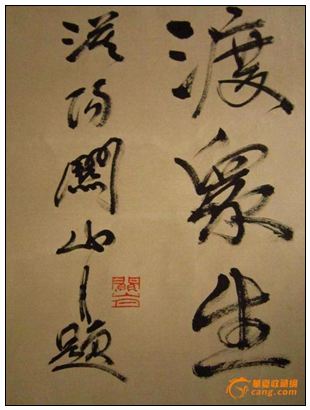 渡眾生
漠陽關山月題
華夏收藏網
cang.com